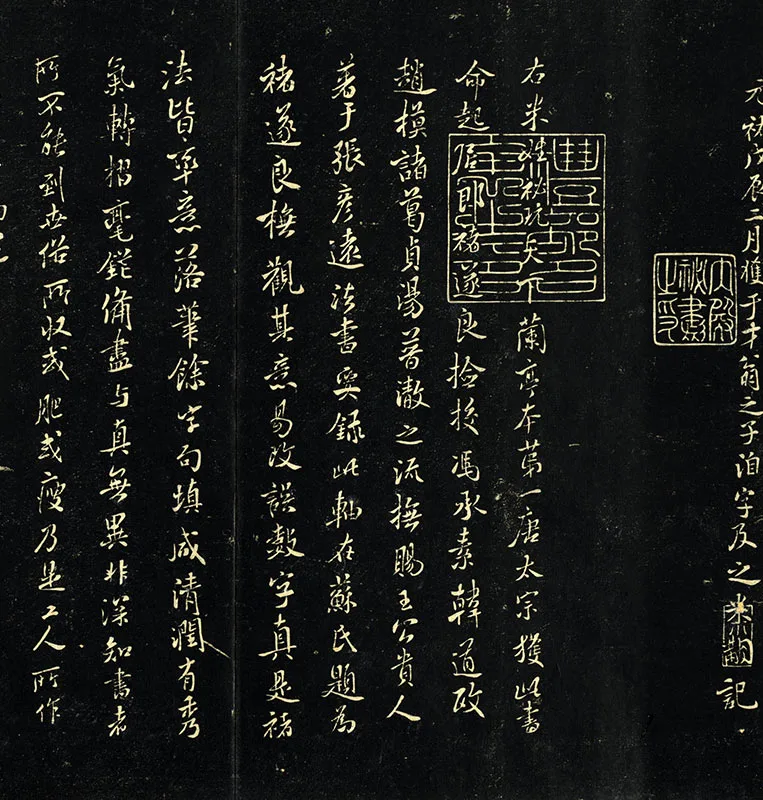 元祐戊辰二月獲于才翁之子洎字及之米黻記
内殿祕書之印
右米姓祕玩天下蘭亭本第一唐太宗獲此書
命起居郎褚遂良撿挍馮承素韓道政
趙模諸葛貞湯普澈之流撫賜王公貴人
著于張彦遠法書要録此軸在蘇氏題為
褚遂良撫觀其意易改誤數字真是褚
法皆率意落筆餘字句填咸清潤有秀
氣轉摺毫鋩備盡与真無異非深知書者
所不能到世俗所收或肥或瘦乃是工人所作